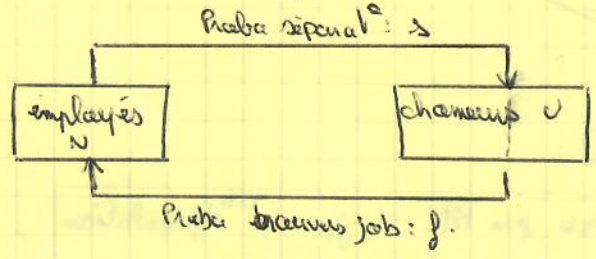 Proba séparat°: s
employés
N
chômeurs U
Proba trouver job: f.